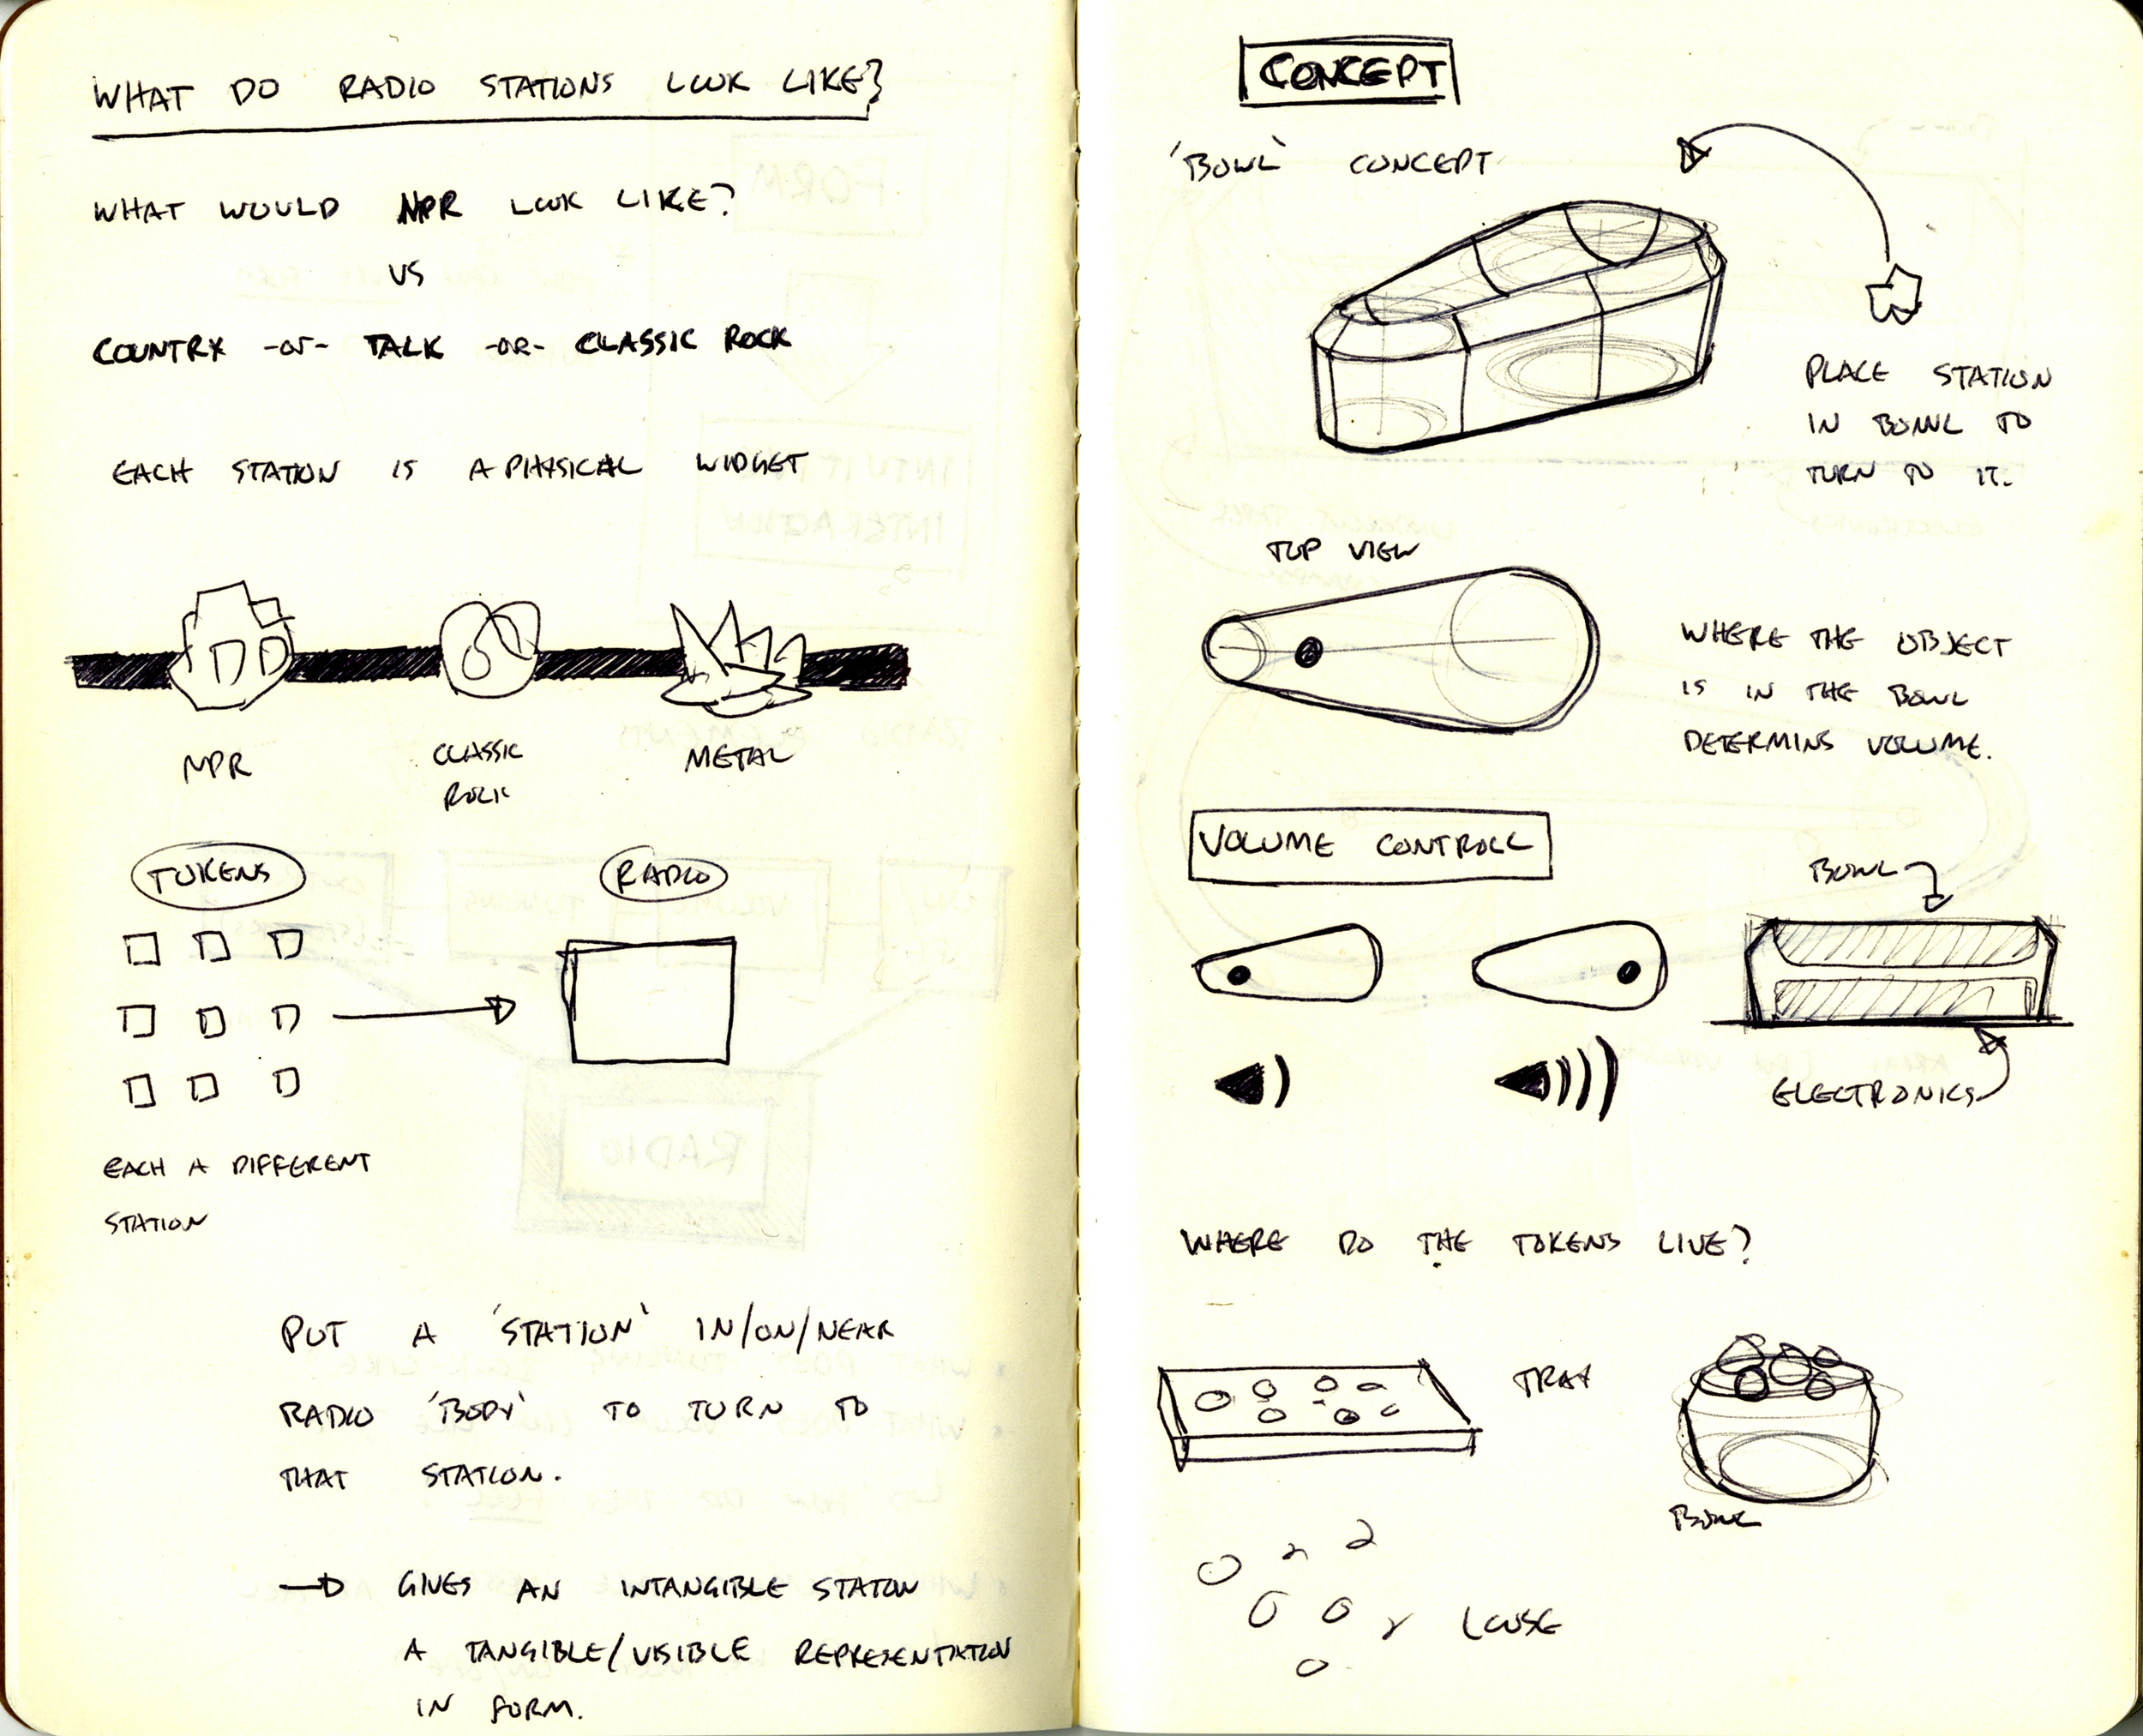 WHAT DO RADIO STATIONS LOOK LIKE?
WHAT WOULD NPR LOOK LIKE?
VS
COUNTRY -OR- TALK -OR- CLASSIC ROCK
EACH STATION IS A PHYSICAL WIDGET
NPR
CLASSIC
ROCK
METAL
TOKENS
RADIO
EACH A DIFFERENT
STATION
PUT A 'STATION' IN/ON/NEAR
RADIO 'BODY' TO TURN TO
THAT STATION.
GIVES AN INTANGIBLE STATON
A TANGIBLE/VISIBLE REPRESENTATION
IN FORM.
CONCEPT
'BOWL' CONCEPT
PLACE STATION
IN BOWL TO
TURN TO IT.
TOP VIEW
WHERE THE OBJECT
IS IN THE BOWL
DETERMINS VOLUME.
VOLUME CONTROLL
BOWL
ELECTRONICS
WHERE DO THE TOKENS LIVE?
TRAY
BOWL
LOOSE